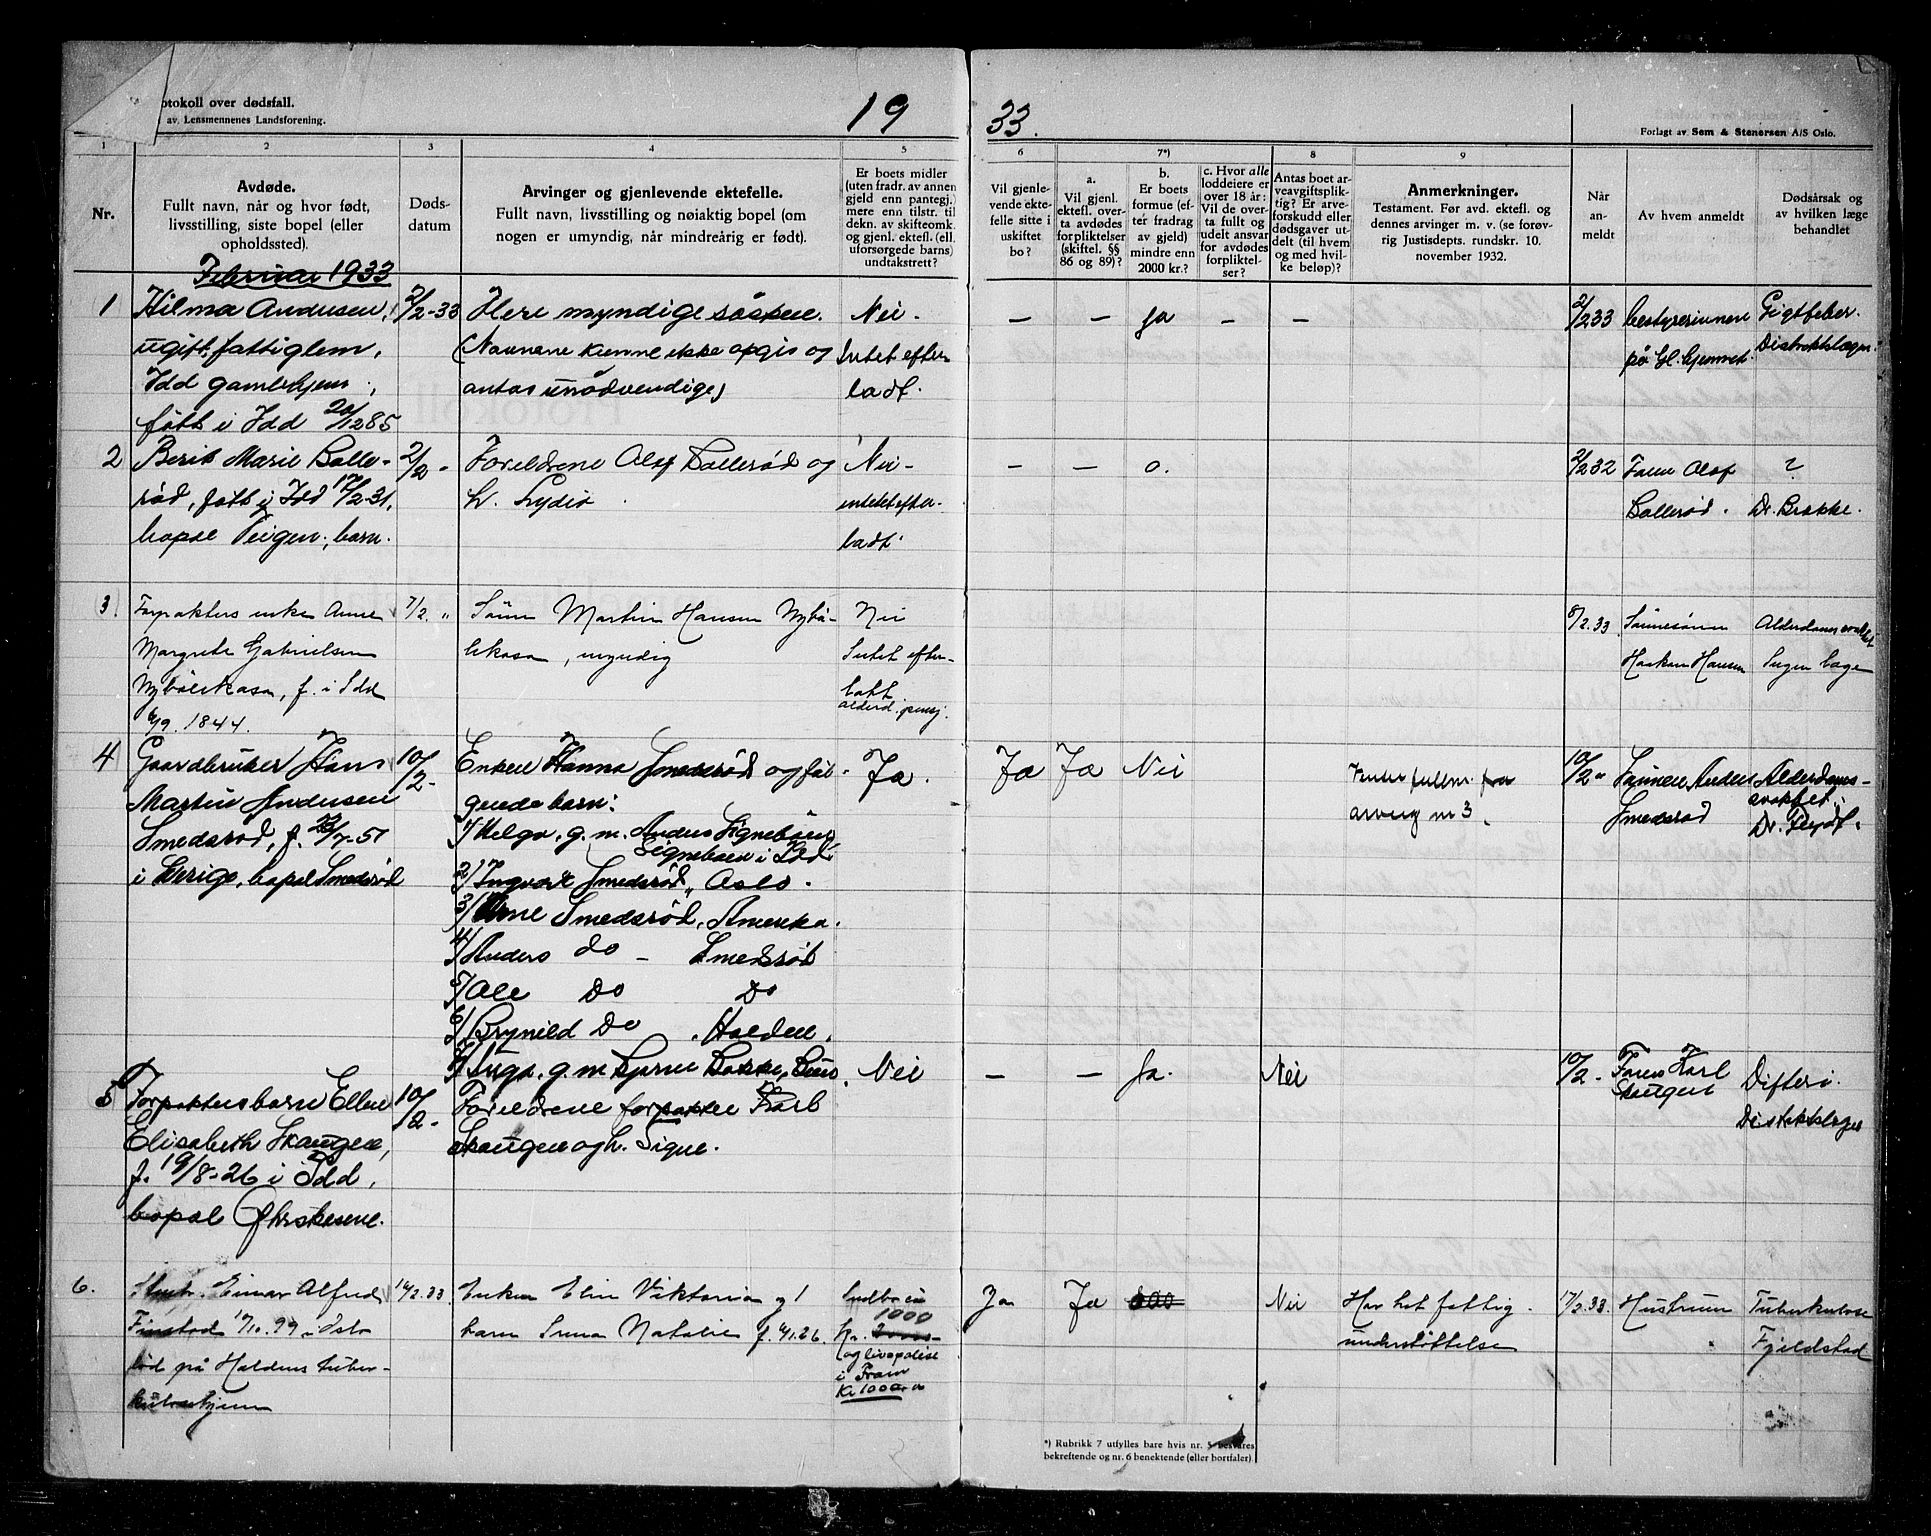 otokoll over dødsfall.
av. Lensmennenes Landsforening.
19 33.
Forlagt av Sem & Stenersen A/S Oslo.
1 2 3 4 5 6 7*) 8 9
Nr.
Avdøde.
Fullt navn, når og hvor født,
livsstilling, siste bopel (eller
opholdssted).
Døds-
datum
Arvinger og gjenlevende ektefelle.
Fullt navn, livsstilling og nøiaktig bopel (om
nogen er umyndig, når mindreårig er født).
Er boets midler
(uten fradr. av annen
gjeld enn pantegj.)
mere enn tilstr. til
dekn. av skifteomk.
og gjenl. ektefl. (ell.
uforsørgede barns)
undtakstrett?
Vil gjenle-
vende ekte-
felle sitte i
uskiftet
bo?
a.
Vil gjenl.
ektefl. over-
ta avdødes
forpliktelser
(skiftel. §§
86 og 89)?
b.
Er boets
formue (ef-
ter fradrag
av gjeld)
mindre enn
2000 kr.?
c. Hvor alle
loddeiere er
over 18 år:
Vil de over-
ta fullt og
udelt ansvar
for avdødes
forpliktel-
ser?
Antas boet ar-
veavgiftsplik-
tig? Er arve-
forskudd eller
dødsgaver ut-
delt (til hvem
og med hvil-
ke beløp)?
Anmerkninger.
Testament. Før avd. ektefl. og
dennes arvinger m. v. (se forøv-
rig Justisdepts. rundskr. 10.
november 1932.
Når
an-
meldt
Av hvem anmeldt
Dødsårsak og
av hvilken læge
behandlet
Februar 1933
1
Hilma Andersen,
ugift, fattiglem,
Idd gamlehjem,
født i Idd 20/12 85
2/2-33
Flere myndige søsken.
(Navnene kunne ikke opgis og
antas unødvendige)
Nei.
Intet efter
ladt.
— — ja — —
2/2 33
bestyrerinnen
på Gl. hjemmet.
Gigtfeber.
Distriktslægen.
2
Berit Marie Bolle-
rød, født i Idd 17/2-31,
bopæl Teigen, barn.
2/2 -
Foreldrene Olof Bollerød og
h. Lydia
Nei-
intet efter-
ladt
— — o.
2/2 32
Faren Olof
Bollerød.
?
Dr. Brække.
3.
Forpakters enke Anne
Margrete Gabrielsen
Nybølekasa, f. i Idd
6/9. 1844.
7/2. "
Sönn Martin Hansen Nybö-
lekasa, myndig
Nei
Intet efter-
latt
alderd. pensj.
8/2.33
Sönnesönnen
Haakon Hansen
Alderdomssvakhet
Ingen læge
4
Gaardbruker Hans
Martin Andersen
Smedsrød, f. 23/7-51
i Sverige, bopæl Smedsrød
10/2-
Enken Hanna Smedsrød og føl-
gende barn:
1/ Helga, g. m. Anders Signebøen
Signebøen i Idd
2/ Ingvart Smedsrød, Oslo.
3/ Arne Smedsrød, Amerika.
4/ Anders do - Smedsrød
5/ Ole Do Do
6/ Brynild Do. Halden.
7/ Inga, g. m. Bjarne Bakke,
Ja.
Ja Ja Nei
arving nr 3.
10/2 "
Sønnen Anders
Smedsrød
Alderdoms-
svakhet.
Dr.
5
Forpaktersbarn Ellen
Elisabeth Skaugen,
f. 19/8-26 i Idd,
bopæl
10/2-
Foreldrene forpakter Karl
Skaugen og h. Signe.
Nei
— — Ja. Nei
10/2 -
Faren Karl
Skaugen
Difteri.
Distriktslægen
6.
Einar Alfred
Finstad 17/10.99 i Oslo
död på Haldens tuber-
kulosehjem
16/2.33
Enken Elin Viktoria og 1
barn Irma Natalie f. 4/1.26.
Indbo ca
1000
kr. 2000-
og livspolise
i Fram
Kr 1000
Ja Ja Nei
Har hat fattig-
understöttelse
17/2.33.
Hustruen
Tuberkulose
Fjeldstad
*) Rubrikk 7 utfylles bare hvis nr. 5 besvares
bekreftende og nr. 6 benektende (eller bortfaler).